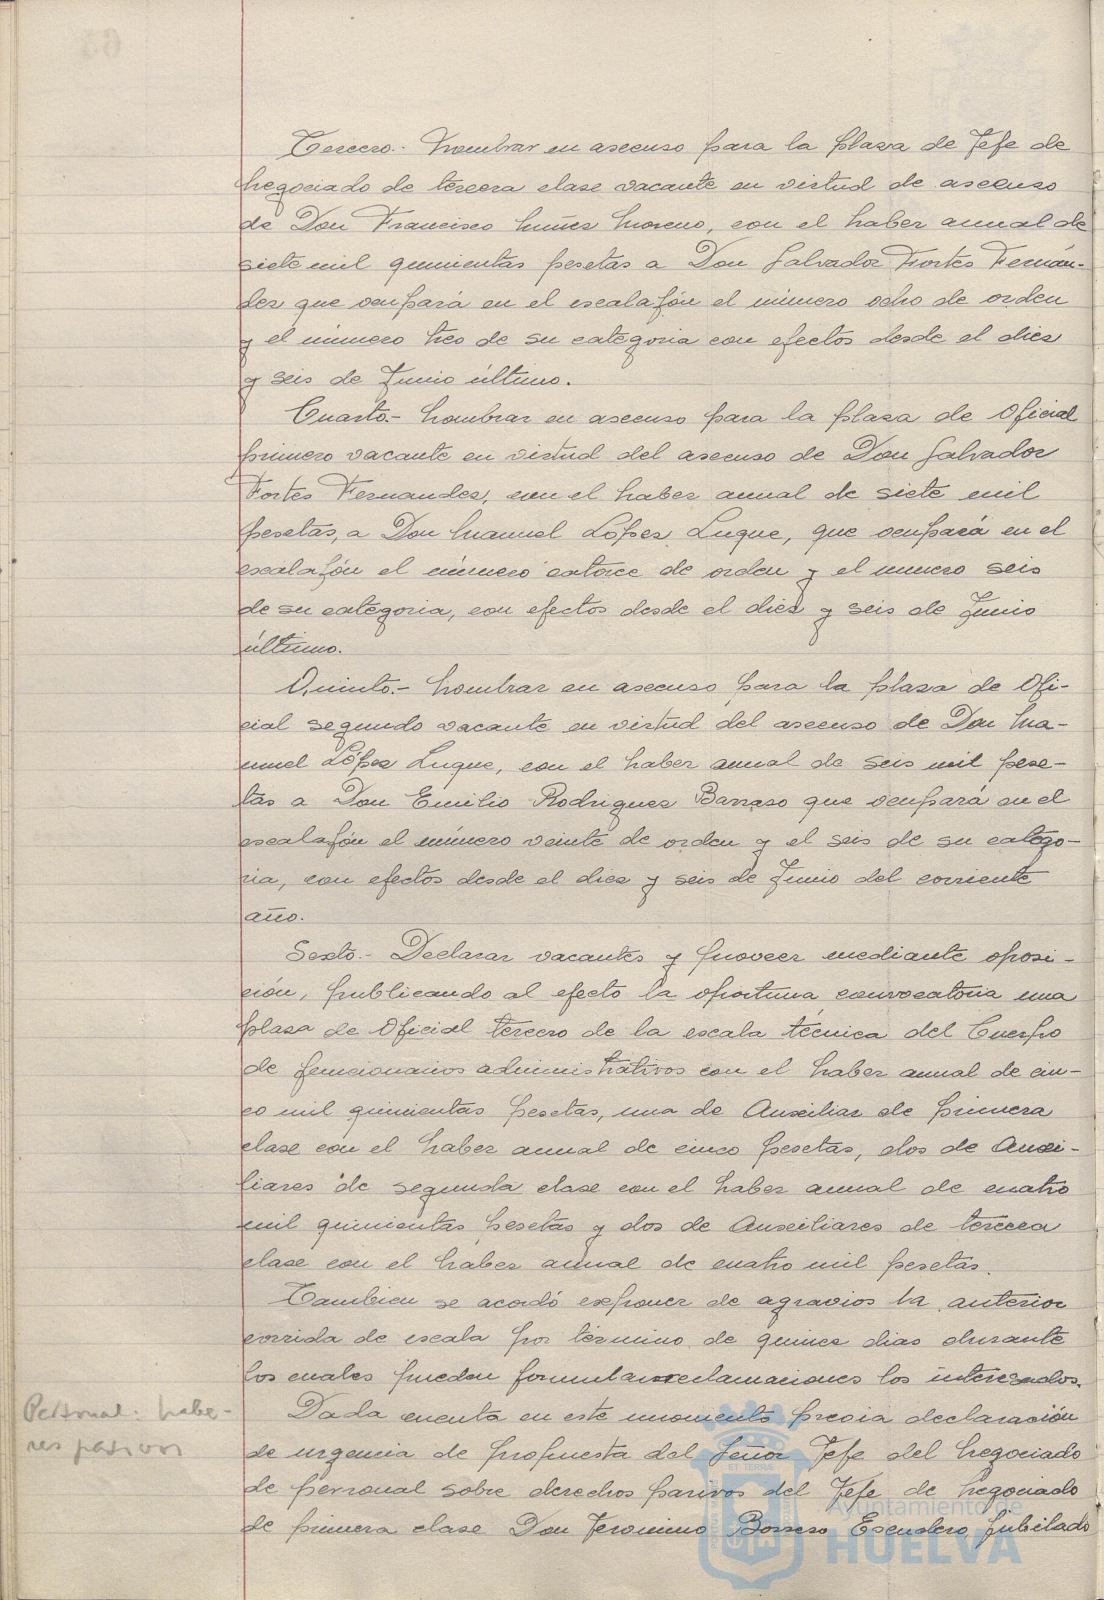 Tercero.- Nombrar en ascenso para la plaza de Jefe de
Negociado de tercera clase vacante en virtud de ascenso
de Don Francisco Nuñez Moreno, con el haber anual de
siete mil quinientas pesetas a Don Salvador Fortes Fernán-
dez que ocupará en el escalafón el número ocho de orden
y el número tres de su categoria con efectos desde el diez
y seis de Junio último.
Cuarto.- Nombrar en ascenso para la plaza de Oficial
primero vacante en virtud del ascenso de Don Salvador
Fortes Fernandez, con el haber anual de siete mil
pesetas, a Don Manuel López Luque, que ocupará en el
escalafón el número catorce de orden y el número seis
de su categoria, con efectos desde el diez y seis de Junio
último.
Quinto.- Nombrar en ascenso para la plaza de Ofi-
cial segundo vacante en virtud del ascenso de Don Ma-
nuel López Luque, con el haber anual de seis mil pese-
tas a Don Emilio Rodriguez Barraso que ocupará en el
escalafón el número veinte de orden y el seis de su catego-
ria, con efectos desde el diez y seis de Junio del corriente
año.
Sexto.- Declarar vacantes y proveer mediante oposi-
ción, publicando al efecto la oportuna convocatoria una
plaza de Oficial tercero de la escala técnica del Cuerpo
de funcionarios administrativos con el haber anual de cin-
co mil quinientas pesetas, una de Auxiliar de primera
clase con el haber anual de cinco pesetas, dos de Auxi-
liares de segunda clase con el haber anual de cuatro
mil quinientas pesetas y dos de Auxiliares de tercera
clase con el haber anual de cuatro mil pesetas.
Tambien se acordó exponer de agravios la anterior
corrida de escala por término de quince dias durante
los cuales puedan formular reclamaciones los interesados.
Personal: habe-
res pasivos
Dada cuenta en este momento previa declaración
de urgencia de propuesta del Señor Jefe del Negociado
de personal sobre derechos pasivos del Jefe de Negociado
de primera clase Don Jeronimo Borrero Escudero, jubilado
Ayuntamiento de
HUELVA